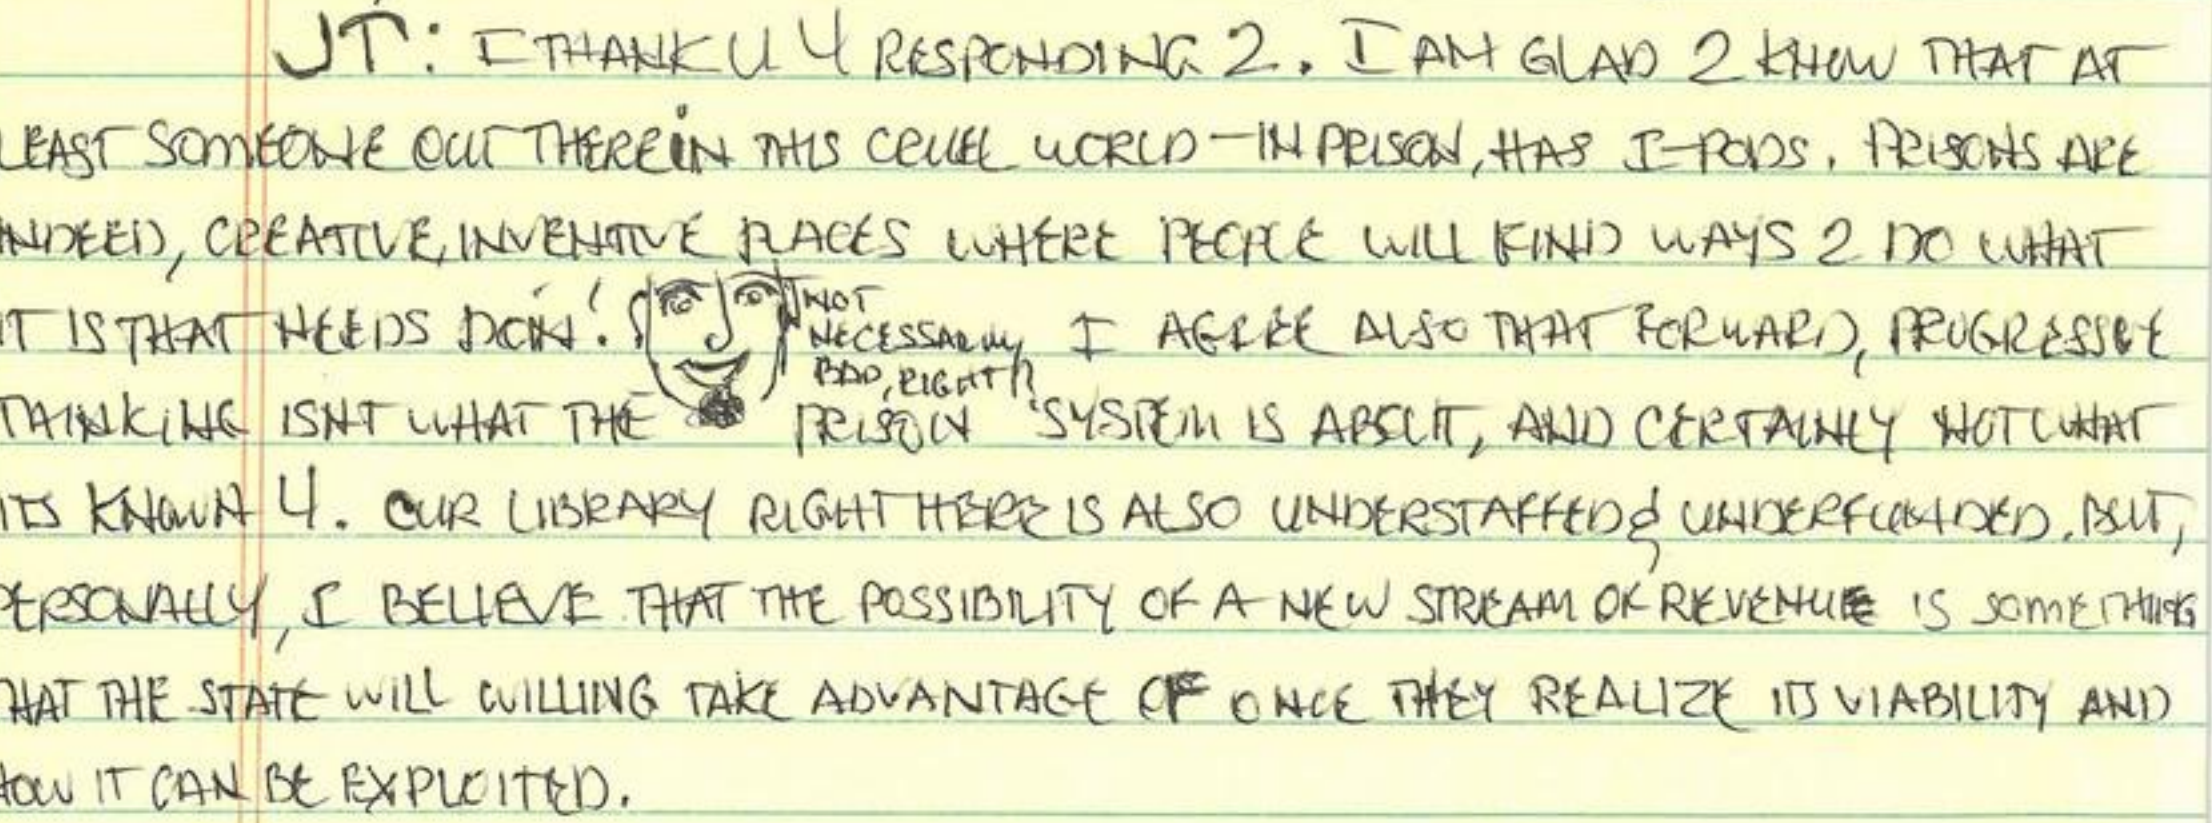 JT: I THANK U 4 RESPONDING 2. I AM GLAD 2 KNOW THAT AT
LEAST SOMEONE OUT THERE IN THIS CRUEL WORLD - IN PRISON, HAS I-PODS. PRISONS ARE
INDEED, CREATIVE, INVENTIVE PLACES WHERE PEOPLE WILL FIND WAYS 2 DO WHAT
IT IS THAT NEEDS DOIN'! I AGREE ALSO THAT FORWARD, PROGRESSIVE
NOT
NECESSARILY
BAD, RIGHT!?
THINKING ISNT WHAT THE PRISON SYSTEM IS ABOUT, AND CERTAINLY NOT WHAT
ITS KNOWN 4. OUR LIBRARY RIGHT HERE IS ALSO UNDERSTAFFED & UNDERFUNDED. BUT,
PERSONALLY, I BELIEVE THAT THE POSSIBILITY OF A NEW STREAM OF REVENUE IS SOMETHING
HAT THE STATE WILL WILLING TAKE ADVANTAGE OF ONCE THEY REALIZE ITS VIABILITY AND
HOW IT CAN BE EXPLOITED.